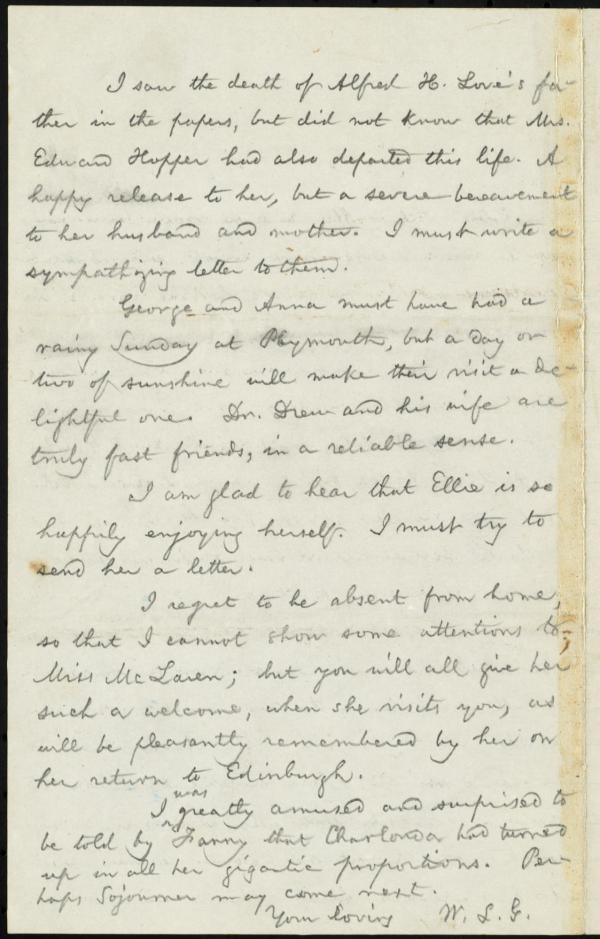 I saw the death of Alfred H. Love's fa-
ther in the papers, but did not know that Mrs.
Edward Hopper had also departed this life. A
happy release to her, but a severe bereavement
to her husband and mother. I must write a
sympathizing letter to them.
George and Anna must have had a
rainy Sunday at Plymouth, but a day or
two of sunshine will make their visit a de-
lightful one. Dr. Drew and his wife are
truly fast friends, in a reliable sense.
I am glad to hear that Ellie is so
happily enjoying herself. I must try to
send her a letter.
I regret to be absent from home,
so that I cannot show some attentions to
Miss McLaren; but you will all give her
such a welcome, when she visits you, as
will be pleasantly remembered by her on
her return to Edinburgh.
I was greatly amused and surprised to
be told by Fanny that Charlonda had turned
up in all her gigantic proportions. Per-
haps Sojourner may come next.
Your loving W. L. G.